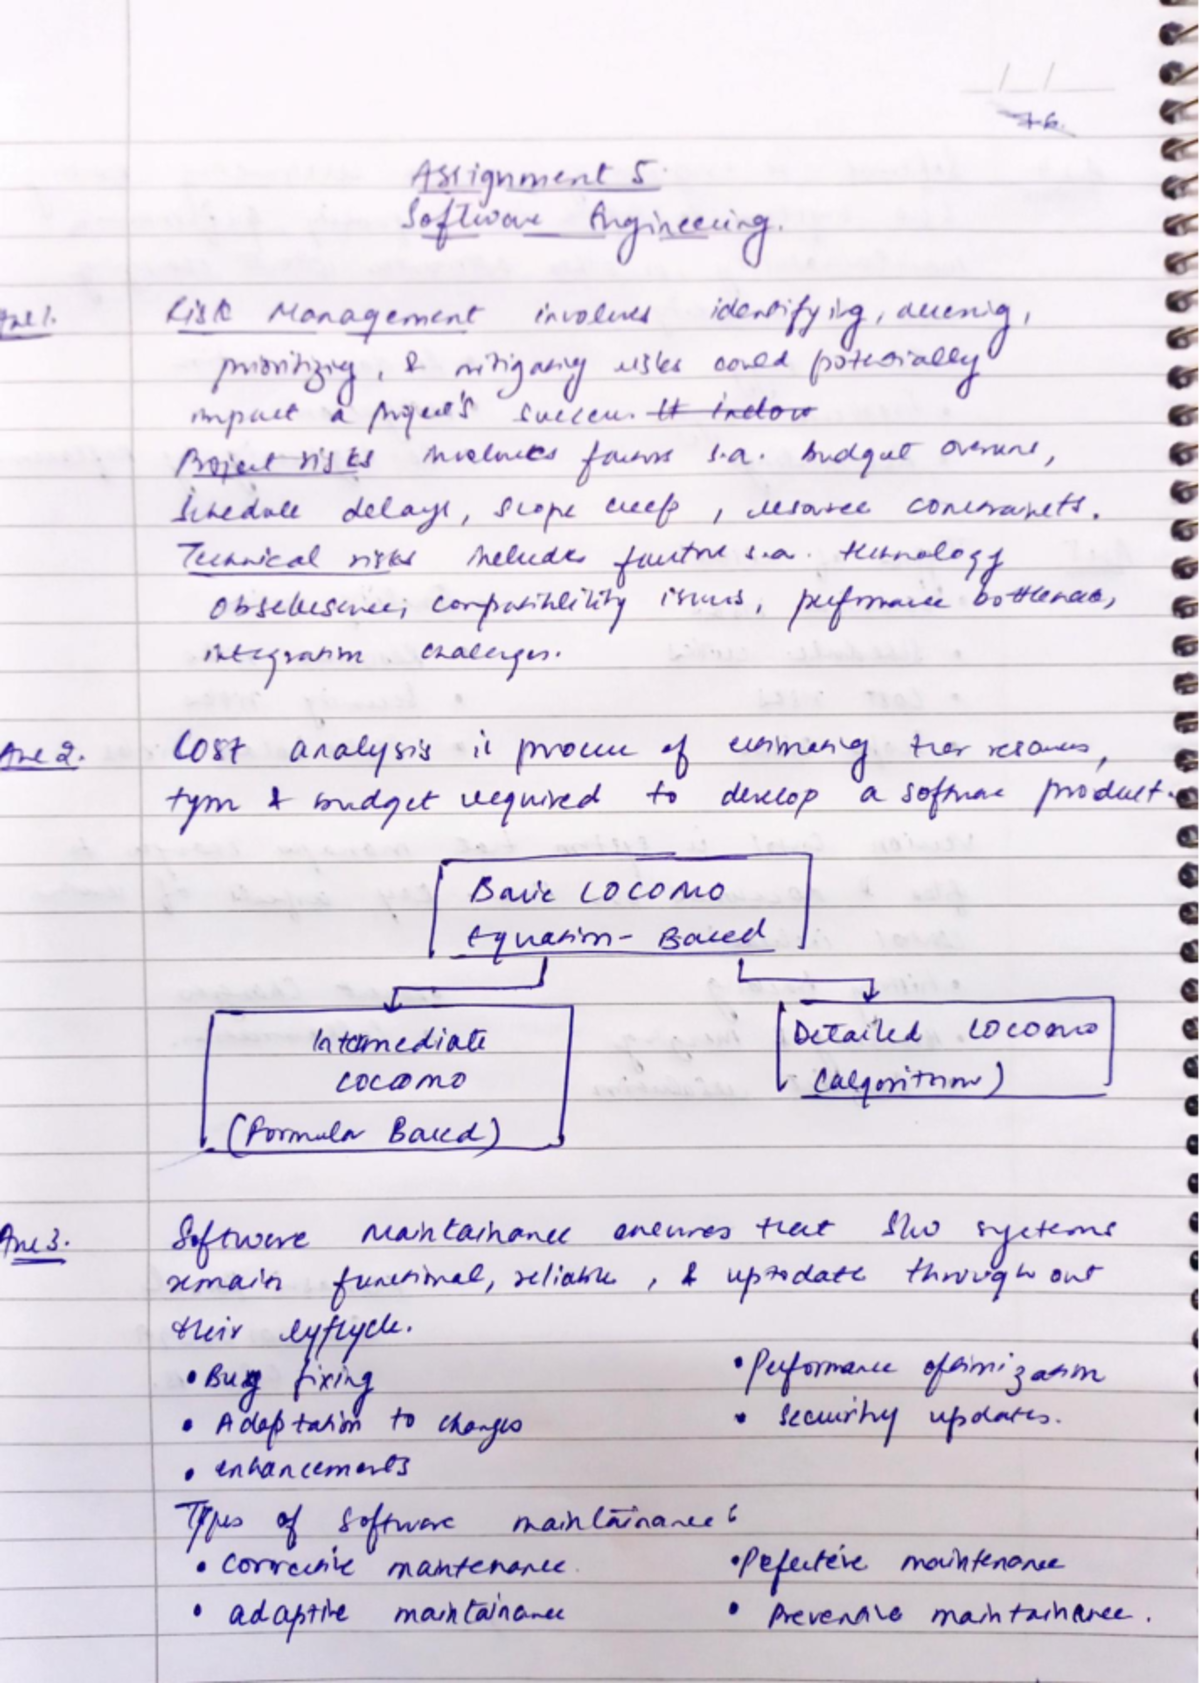 Assignment 5.
Software Engineering.
Ans 1. Risk Management involves identifying, assessing,
prioritizing, & mitigating risks could potentially
impact a project's success. It
Project risks involves factors s.a. budget overuns,
Schedule delays, scope creep, resource constraints.
Technical risks includes factors s.a. technology
compatibility issues, performance bottlenecks,
integration challenges.
Ans 2. Cost analysis is process of estimating the resources,
tym & budget required to develop a software product.
Basic COCOMO
Equation - Based
Intermediate
COCOMO
(Formula Based)
Detailed COCOMO
(algorithm)
Ans 3. Software Maintainance ensures that S/w systems
remain functional, reliable, & uptodate throughout
their lyfcycle.
• Bug fixing • Performance optimization
• Adaptation to changes • Security updates.
• enhancements
Types of Software maintainance:
• Corrective maintenance. • Pefective maintenance
• adaptive maintainance • Preventive maintainance.